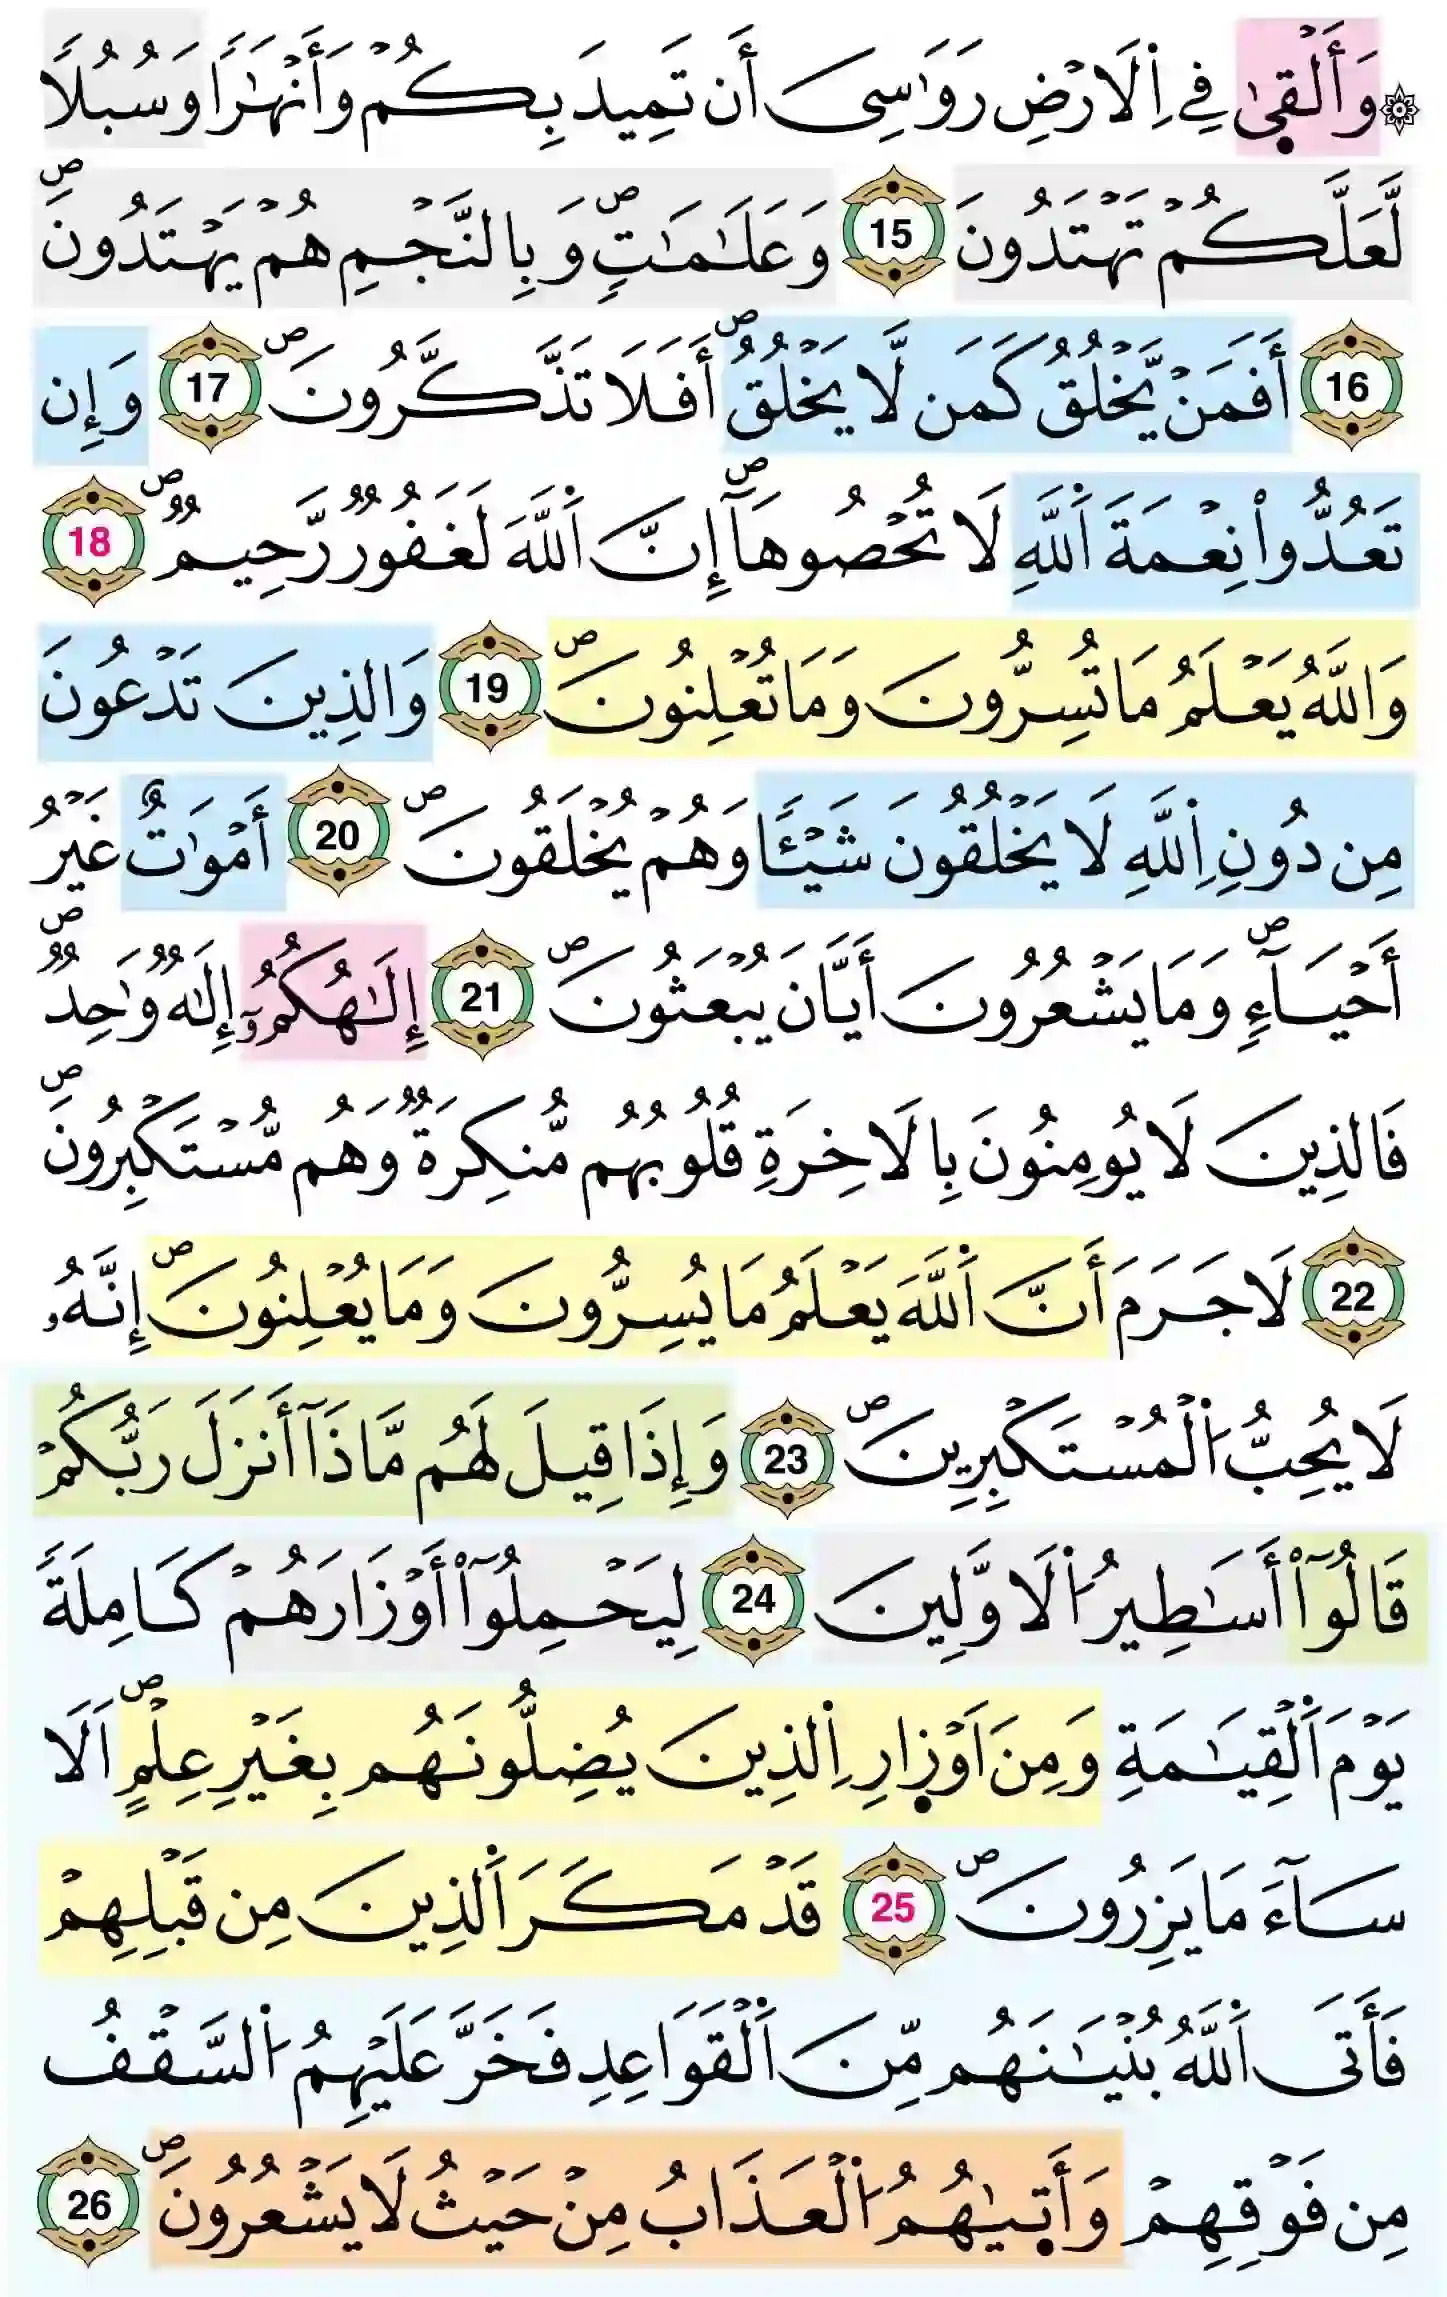 ۞ وَأَلْق۪ىٰ فِے اِ۬لَارْضِ رَوَٰسِىَ أَن تَمِيدَ بِكُمْ وَأَنْهَٰراٗ وَسُبُلاٗ
لَّعَلَّكُمْ تَهْتَدُونَ 15 وَعَلَٰمَٰتٖۖ وَبِالنَّجْمِ هُمْ يَهْتَدُونَۖ
16 أَفَمَنْ يَّخْلُقُ كَمَن لَّا يَخْلُقُۖ أَفَلَا تَذَّكَّرُونَۖ 17 وَإِن
تَعُدُّواْ نِعْمَةَ اَ۬للَّهِ لَا تُحْصُوهَآۖ إِنَّ اَ۬للَّهَ لَغَفُورٞ رَّحِيمٞۖ 18
وَاللَّهُ يَعْلَمُ مَا تُسِرُّونَ وَمَا تُعْلِنُونَۖ 19 وَالذِينَ تَدْعُونَ
مِن دُونِ اِ۬للَّهِ لَا يَخْلُقُونَ شَيْـٔاٗ وَهُمْ يُخْلَقُونَۖ 20 أَمْوَٰتٌ غَيْرُ
أَحْيَآءٖۖ وَمَا يَشْعُرُونَ أَيَّانَ يُبْعَثُونَۖ 21 إِلَٰهُكُمُۥٓ إِلَٰهٞ وَٰحِدٞۖ
فَالذِينَ لَا يُومِنُونَ بِالَاخِرَةِ قُلُوبُهُم مُّنكِرَةٞ وَهُم مُّسْتَكْبِرُونَۖ
22 لَا جَرَمَ أَنَّ اَ۬للَّهَ يَعْلَمُ مَا يُسِرُّونَ وَمَا يُعْلِنُونَۖ إِنَّهُۥ
لَا يُحِبُّ اُ۬لْمُسْتَكْبِرِينَۖ 23 وَإِذَا قِيلَ لَهُم مَّاذَآ أَنزَلَ رَبُّكُمْ
قَالُوٓاْ أَسَٰطِيرُ اُ۬لَاوَّلِينَ 24 لِيَحْمِلُوٓاْ أَوْزَارَهُمْ كَامِلَةٗ
يَوْمَ اَ۬لْقِيَٰمَةِ وَمِنَ اَوْز۪ارِ اِ۬لذِينَ يُضِلُّونَهُم بِغَيْرِ عِلْمٍۖ اَلَا
سَآءَ مَا يَزِرُونَۖ 25 قَدْ مَكَرَ اَ۬لذِينَ مِن قَبْلِهِمْ
فَأَتَى اَ۬للَّهُ بُنْيَٰنَهُم مِّنَ اَ۬لْقَوَاعِدِ فَخَرَّ عَلَيْهِمُ اُ۬لسَّقْفُ
مِن فَوْقِهِمْ وَأَت۪يٰهُمُ اُ۬لْعَذَابُ مِنْ حَيْثُ لَا يَشْعُرُونَۖ 26